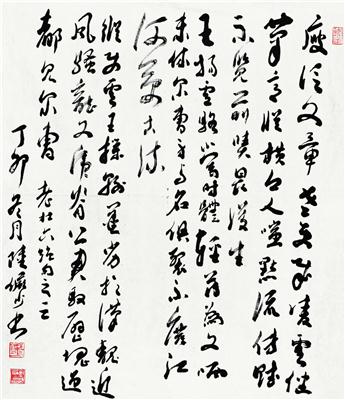 庾信文章老更成凌雲健
筆意縱橫今人嗤點流傳賦
不覺前賢畏後生
王楊盧駱當時體輕薄為文哂
未休爾曹身與名俱裂不廢江
河萬古流
縱使盧王操翰墨劣於漢魏近
風騷龍文虎脊皆君馭歷塊過
都見爾曹 老杜六絕句之三
丁卯冬月陸儼少書